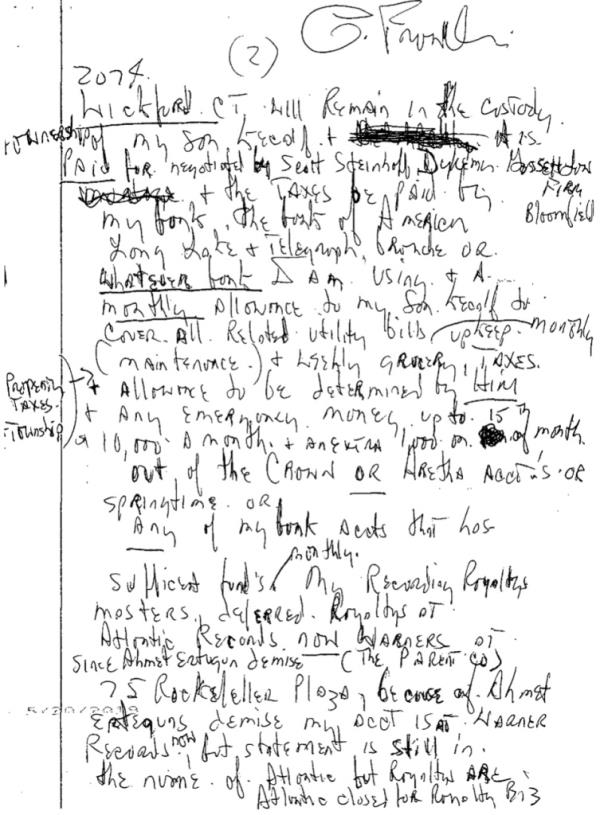 (2)
2074.
Wickford CT will Remain in the custody
ownership of my son Kecalf +
Paid for negotiated by Scott Steinhoff, Dykema Gossett Law
Firm
Bloomfield
+ the TAXES be paid by
my bank, the bank of America
Long Lake + Telegraph, branche OR
whatever bank I am using + A
monthly allowance to my son Kecalf to
cover all Related utility bills upkeep monthly
(maintenance.) + weekly grocery, TAXES.
Property
Taxes.
Township
+ Allowance to be determined by Him
+ Any emergency money up to 15th
10,000. a month. + an extra 1,000 on of month
out of the CROWN OR Aretha Acct's OR
Springtime OR
Any of my bank Accts that has
monthly.
sufficient fund's. My Recording Royaltys
masters, deferred Royaltys at
Atlantic Records now Warners at
Since Ahmet Ertegun demise (The PARENT CO)
75 Rockefeller Plaza, because of Ahmet
5/20/2019
Erteguns demise my Acct is at Warner
Records now, but statement is still in
the name of Atlantic but Royaltys are
Atlantic closed for Royalty Biz